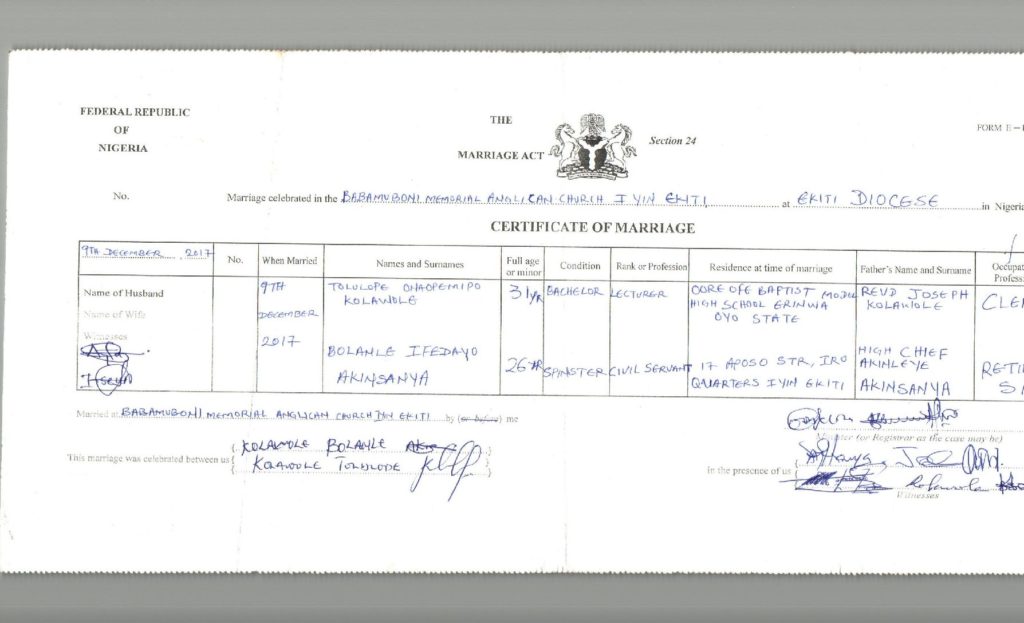 FEDERAL REPUBLIC
OF
NIGERIA
THE
MARRIAGE ACT
Section 24
FORM E-1
No. Marriage celebrated in the BABAMUBONI MEMORIAL ANGLICAN CHURCH IYIN EKITI at EKITI DIOCESE in Nigeria
CERTIFICATE OF MARRIAGE
9TH DECEMBER, 2017 No. When Married Names and Surnames Full age or minor Condition Rank or Profession Residence at time of marriage Father's Name and Surname Occupat
Profess
Name of Husband 9TH TOLULOPE OHAOPEMIPO 31yr BACHELOR LECTURER OORE OFE BAPTIST MODEL REVD JOSEPH
KOLAWOLE HIGH SCHOOL ERINWA KOLAWOLE CLE
Name of Wife DECEMBER OYO STATE
Witnesses 2017
BOLANLE IFEDAYO 26 YR SPINSTER CIVIL SERVANT 17 APOSO STR, IRO HIGH CHIEF AKINLEYE RETI
AKINSANYA QUARTERS IYIN EKITI AKINSANYA
Married at BABAMUBONI MEMORIAL ANGLICAN CHURCH IYIN EKITI by (or before) me
Minister (or Registrar as the case may be)
This marriage was celebrated between us { KOLAWOLE BOLANLE
KOLAWOLE TOLULOPE
In the presence of us
Witnesses